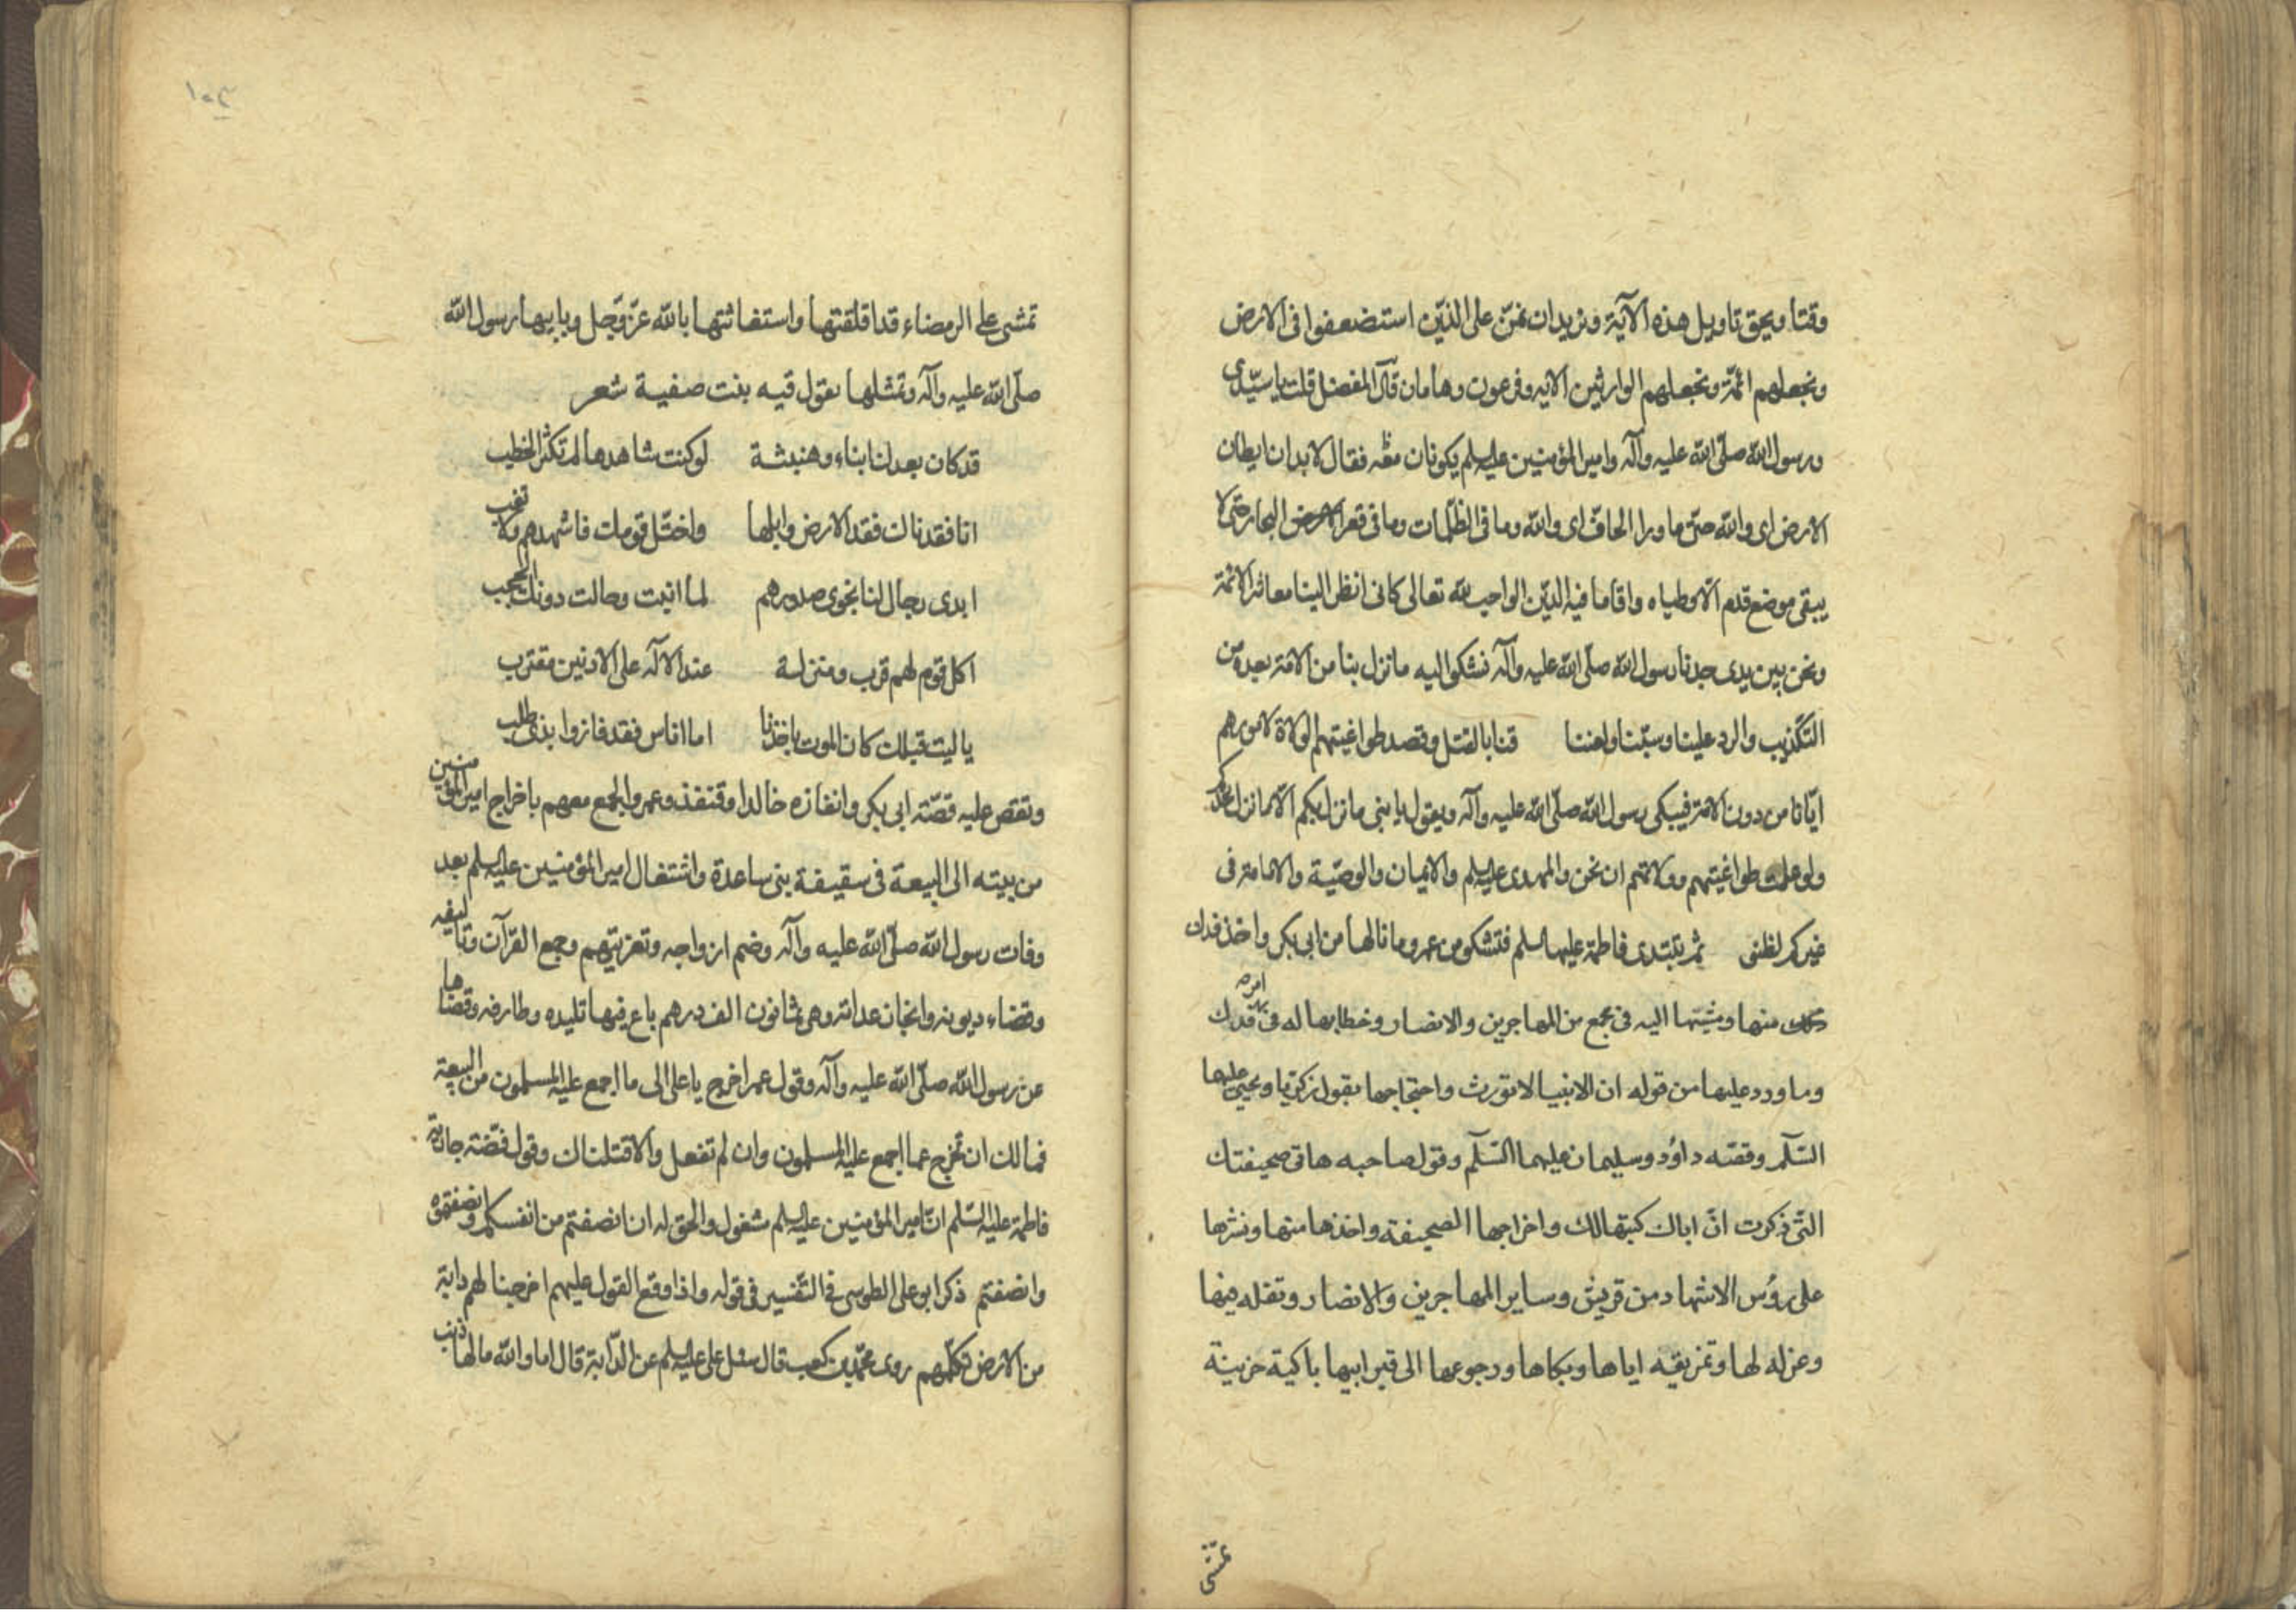 وقتنا ويحق تاويل هذه الآية ونريدان نمنّ على الذيّن استضعفوا فى الارض
ونجعلهم ائمّة ونجعلهم الوارثين الايه وفرعون وهامان قال المفضل قلت ياسيّدى
ورسول الله صلّى الله عليه وآله وامير المؤمنين عليه السلم يكونان معه فقال لابدان يطان
الارض اى والله حتى ما ورا الحاف اى والله وما فى الظلمات وما فى قعر البحار حتى لا
يبقى موضع قدم الا وطياه واقاما فيه الديّن الواجب لله تعالى كانى انظر الينا معاشر الائمة
ونحن بين يدى جدنا رسول الله صلّى الله عليه وآله نشكوا اليه ما نزل بنا من الامة بعده من
التكذيب والرد علينا وسبّنا ولعننا قنا بالقتل وقصد طواغيتهم الولاة لامورهم
ايّانا من دون الامة فيبكى رسول الله صلّى الله عليه وآله ويقول يا بنى ما نزل بكم الا ما نزل بجدكم
ولو علمت طواغيتهم وولاتهم ان نحن والمهدى عليه السلم والايمان والوصيّة والامامة فى
غيركم لظنى ثم تبتدى فاطمة عليها السلم فتشكو من عمر وما نالها من ابى بكر واخذ فدك
منها ومشيتها اليه فى مجمع من المهاجرين والانصار وخطابها له فى امر فدك
وما ورد عليها من قوله ان الانبيا لا تورث واحتجاجها بقول زكريا ويحيى عليها
السّلم وقصّه داؤد وسليمان عليهما السّلم وقول صاحبه هاتى صحيفتك
التى ذكرت انّ اباك كبتها لك واخراجها الصحيفة واخذها منها ونشرها
على رؤس الاشهاد من قريش وساير المهاجرين والانصار وتفله فيها
وعزله لها وتمزيقه اياها وبكاها ورجوعها الى قبر ابيها باكية حزينة
تمشى
تمشى على الرمضاء قد اقلقتها واستغاثتها بالله عزّ وجّل وبابيها رسول الله
صلّى الله عليه وآله وتمثلها بقول قيه بنت صفية شعر
قد كان بعدك انباء وهنبثة لو كنت شاهدها لم تكثر الخطب
انا فقدناك فقد الارض وابلها واختّل قومك فاشهدهم ولا تغب
ابدى رجال لنا نجوى صدورهم لما انيت وحالت دونك الحجب
اكل قوم لهم قرب ومنزلة عند الاله على الادنين مقترب
ياليت قبلك كان الموت ياخذنا اما اناس فقد فازوا بذى طلب
وتقص عليه قصّة ابى بكر وانفازه خالدا وقنفذ وعمر والجمع معهم باخراج امير المؤمنين
من بيته الى البيعة فى سقيفة بنى ساعدة واشتغال امير المؤمنين عليه السلم بعد
وفات رسول الله صلّى الله عليه وآله وضم ازواجه وتعزيتهم وجمع القرآن وتاليفه
وقضاء ديونه وانجاز عداته وهى ثمانون الف درهم باع فيها تليده وطارفه وقضاها
عن رسول الله صلّى الله عليه وآله وقول عمر اخرج يا على الى ما اجمع عليه المسلمون من البيعة
فمالك ان تخرج عما اجمع عليه المسلمون وان لم تفعل والا قتلناك وقول فضّة جارية
فاطمة عليه السّلم انّ امير المؤمنين عليه السلم مشغول والحق له ان انصفتم من انفسكم وانصفتموه
وانصفتم ذكر ابو على الطوسى فى التفّسير فى قوله واذا وقع القول عليهم اخرجنا لهم دابة
من الارض تكلّمهم روى محمّد بن كعب قال سئل على عليه السلم عن الدّابة قال اما والله مالها ذنب